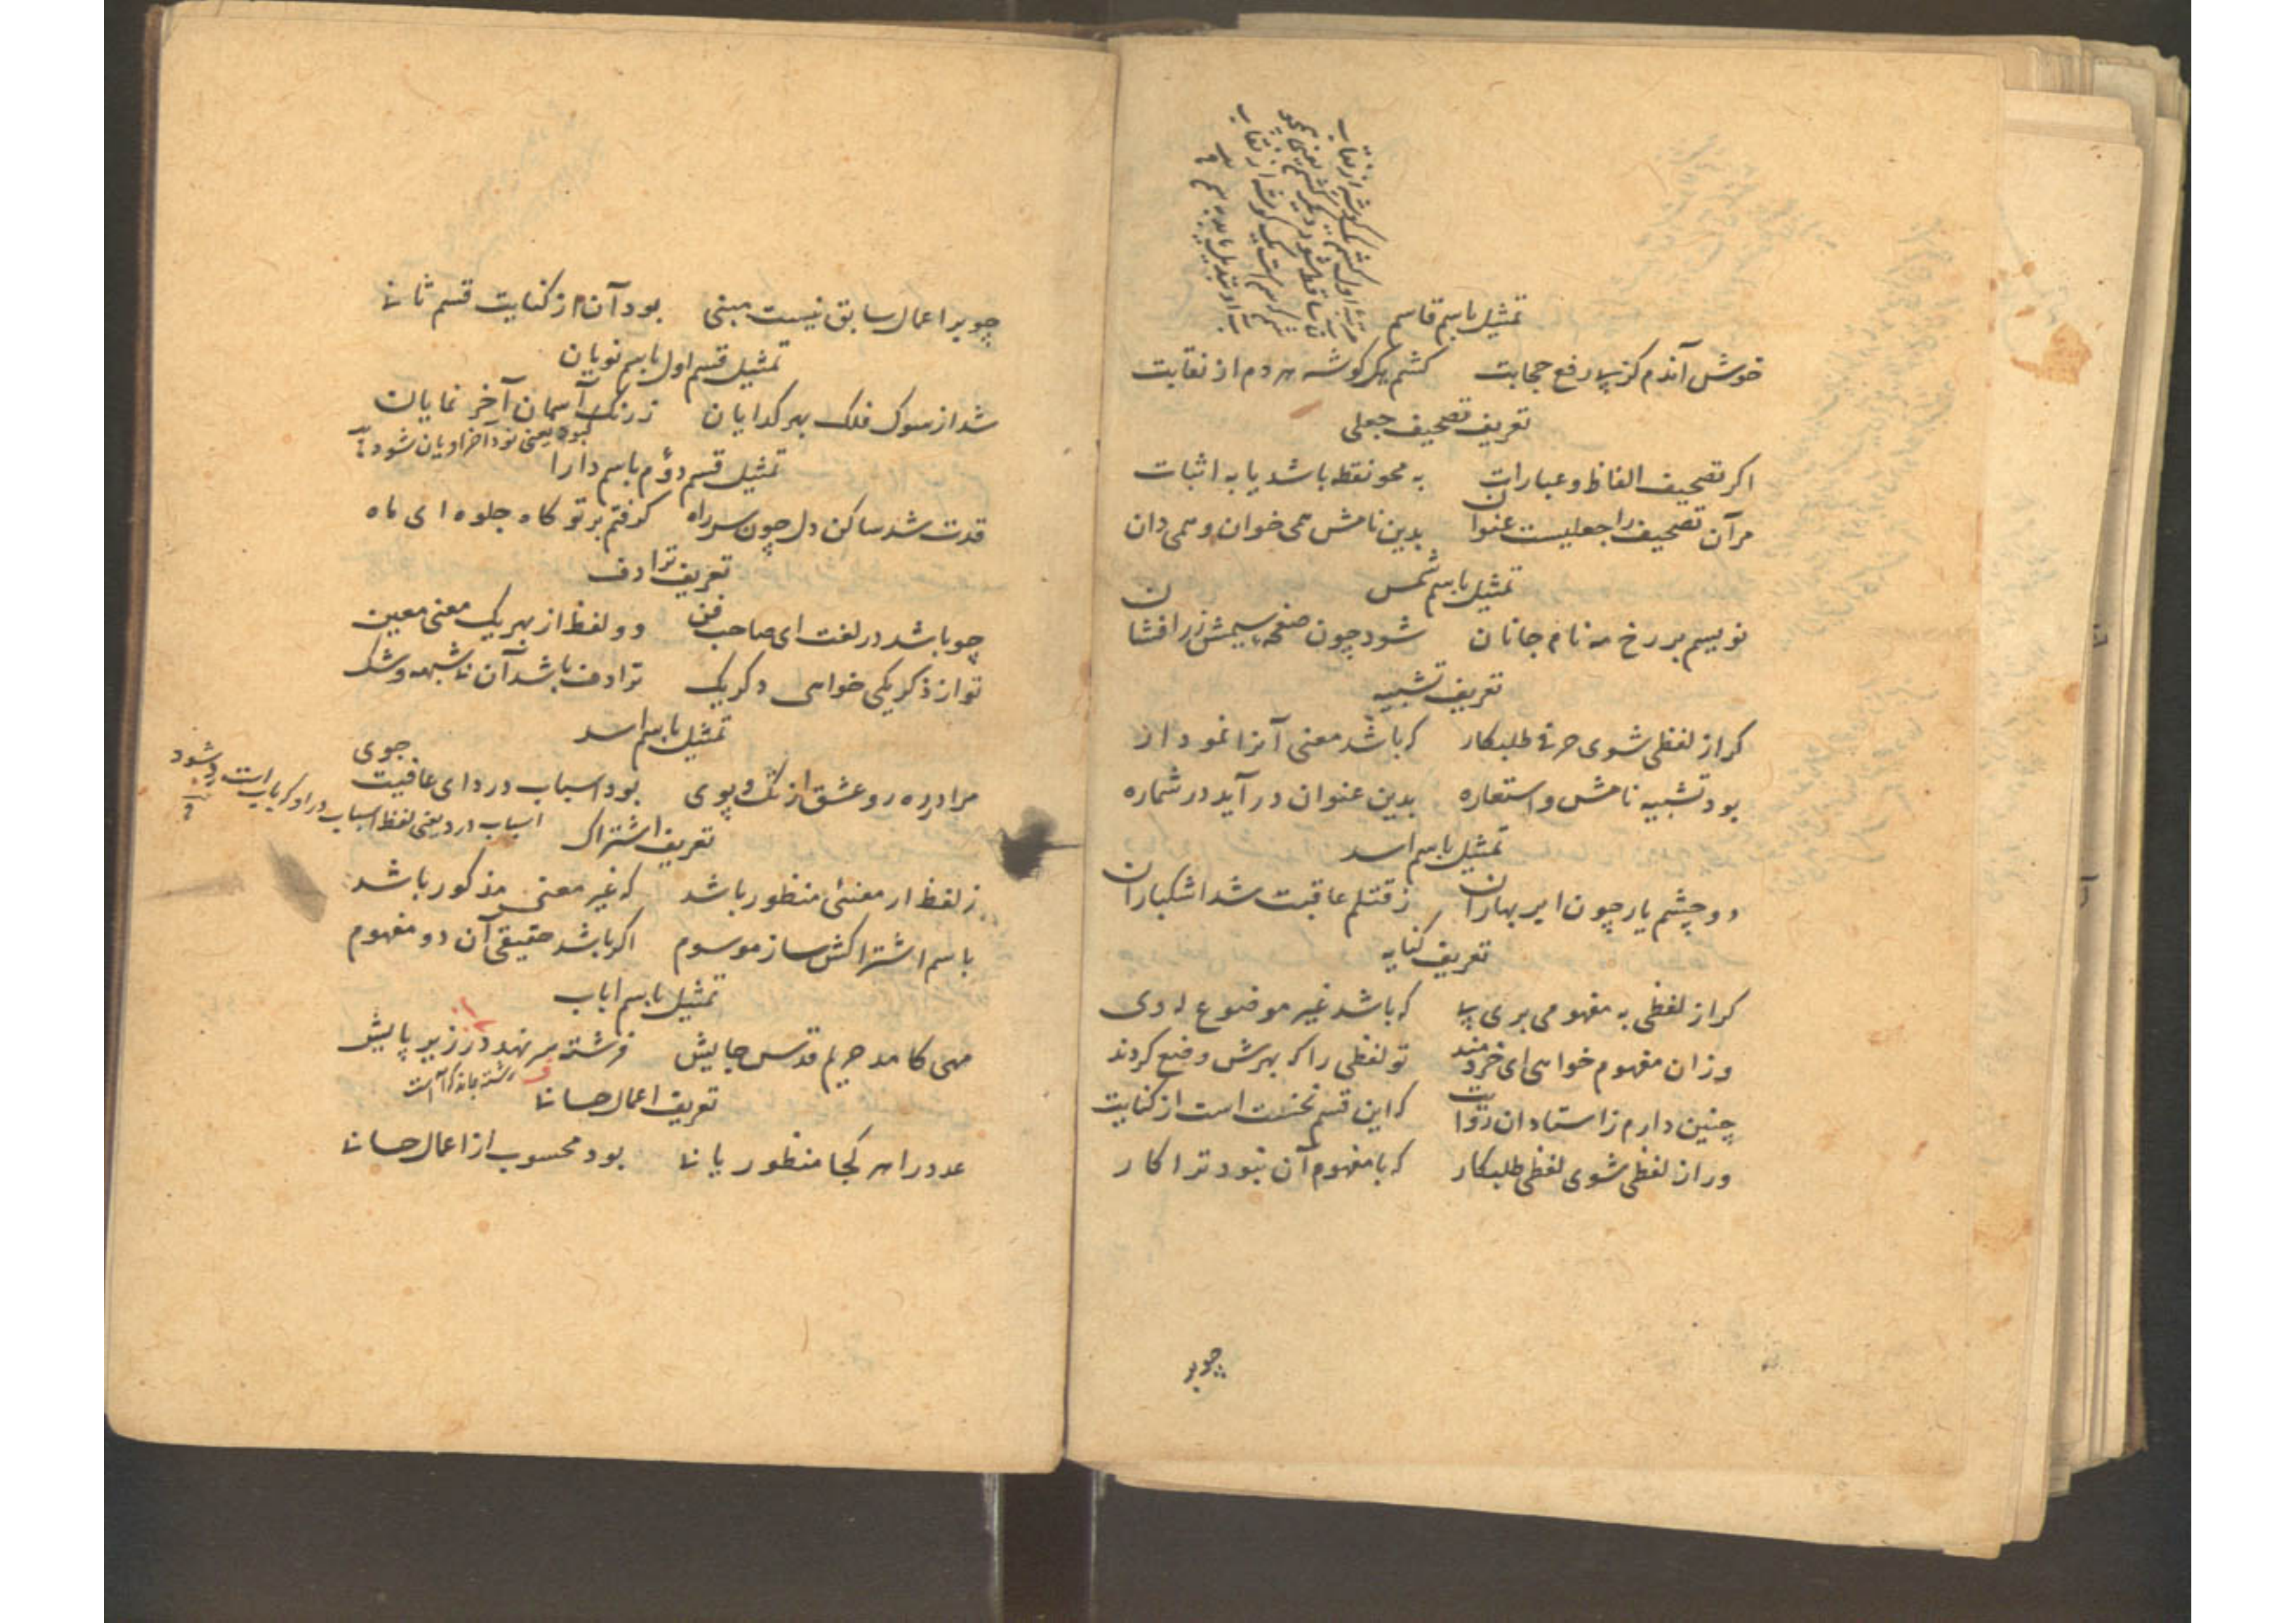 تمثیل باسم قاسم
خوش آندم کز پی رفع حجابت کشم هر گوشه هر دم از نقابت
تعریف تصحیف جعلی
اکر تصحیف الفاظ و عبارات به محو نقطه باشد یا به اثبات
مرآن تصحیف را جعلیست عنوان بدین نامش همی خوان و همی دان
تمثیل باسم شمس
نویسم بر رخ مه نام جانان شود چون صفحه سیمش زر افشان
تعریف تشبیه
کر از لفظی شوی حرفی طلبکار که باشد معنی آنرا نمودار
بود تشبیه نامش و استعاره بدین عنوان در آید در شماره
تمثیل باسم اسد
دو چشم یار چون ابر بهاران ز قتلم عاقبت شد اشکباران
تعریف کنایه
کر از لفظی به مفهومی بری پی که باشد غیر موضوع له وی
وزان مفهوم خواهی ای خردمند تو لفظی را که بهرش وضع کردند
چنین دارم ز استادان روایت که این قسم نخست است از کنایت
ور از لفظی شوی لفظی طلبکار که با مفهوم آن نبود ترا کار
چو بر
چو بر اعمال سابق نیست مبنی بود آن از کنایت قسم ثانی
تمثیل قسم اول باسم نویان
شد از سوک فلک بهر کدایان ز رنک آسمان آخر نمایان
کبود یعنی نود آخر او یان شود
تمثیل قسم دوم باسم دارا
قدت شد ساکن دل چون سر راه کرفتم بر تو کاه جلوه ای ماه
تعریف ترادف
چو باشد در لغت ای صاحب فن دو لفظ از بهر یک معنی معین
تو از ذکر یکی خواهی دکر یک ترادف باشد آن بی شبهه و شک
تمثیل باسم اسد
مرا در ره رو عشق از تک و پوی بود اسباب درد ای عافیت جوی
اسباب درد یعنی لفظ اسباب در او که باب است رد شود
تعریف اشتراک
ز لفظ ار معنئی منظور باشد که غیر معنی مذکور باشد
باسم اشتراکش ساز موسوم اکر باشد حقیقی آن دو مفهوم
تمثیل باسم اباب
مهی کامد حریم قدس جایش فرشته سر نهد در زیر پایش
تعریف اعمال حسابی
عدد را هر کجا منظور یابی بود محسوب از اعمال حسابی